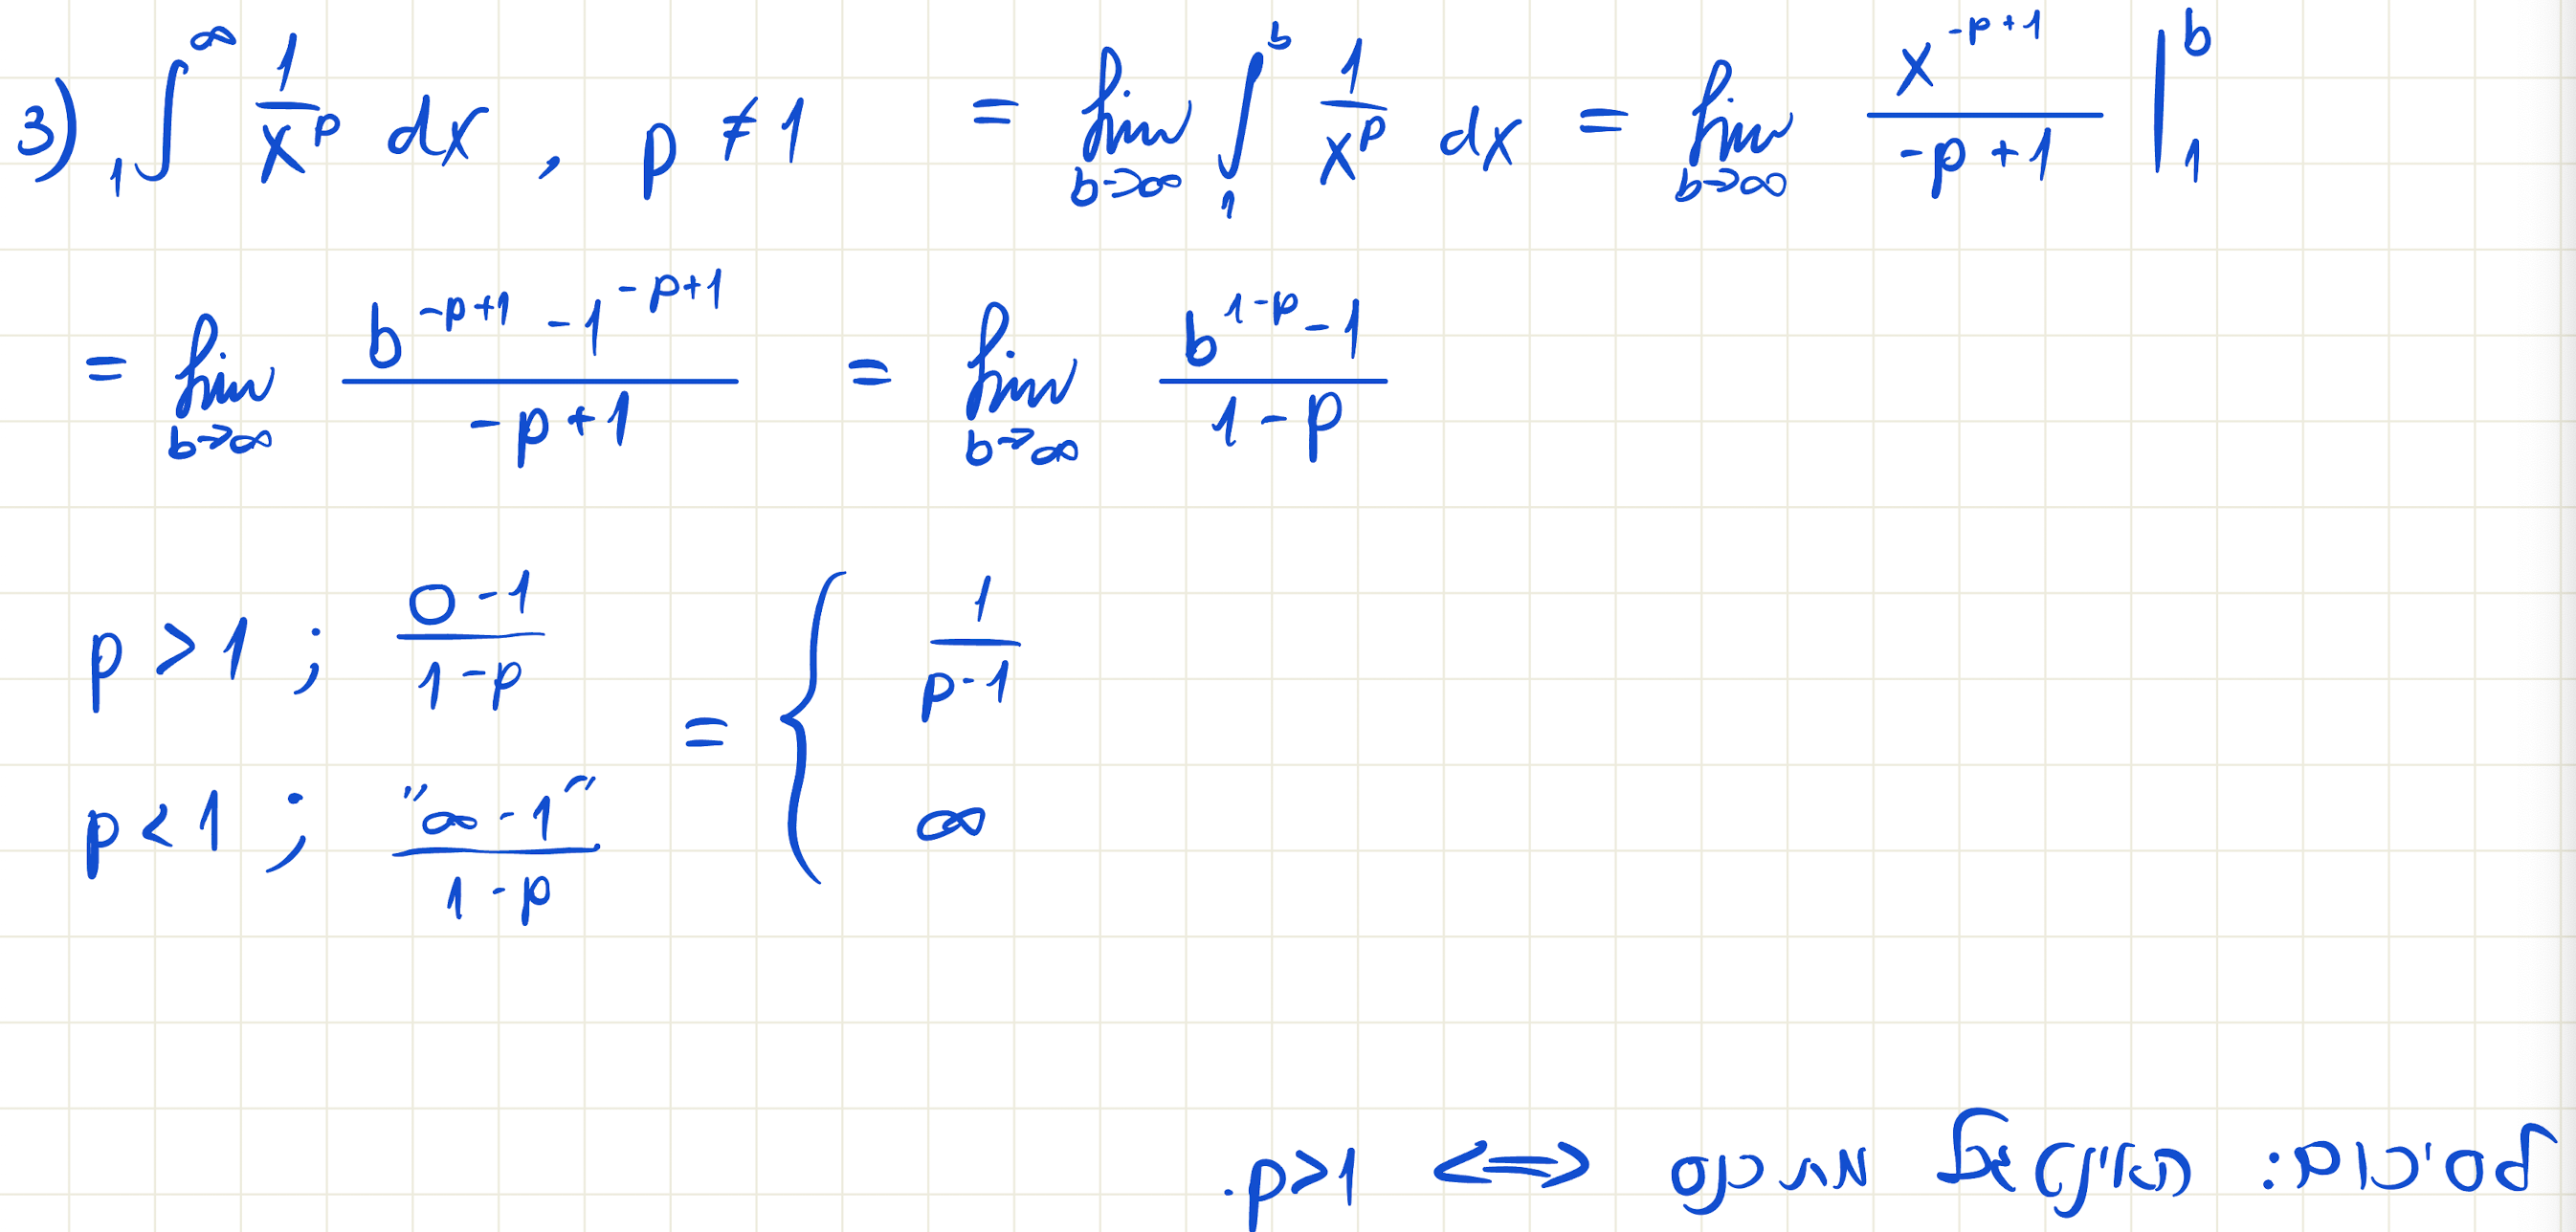 3) ₁∫^∞ 1/x^p dx , p ≠ 1 = lim_{b→∞} ∫_1^b 1/x^p dx = lim_{b→∞} x^{-p+1}/(-p+1) |_1^b
= lim_{b→∞} (b^{-p+1} - 1^{-p+1})/(-p+1) = lim_{b→∞} (b^{1-p} - 1)/(1-p)
p > 1 ; (0-1)/(1-p) = { 1/(p-1)
p < 1 ; "∞-1"/(1-p) ∞
לסיכום: האינטגרל מתכנס ⟺ p>1.